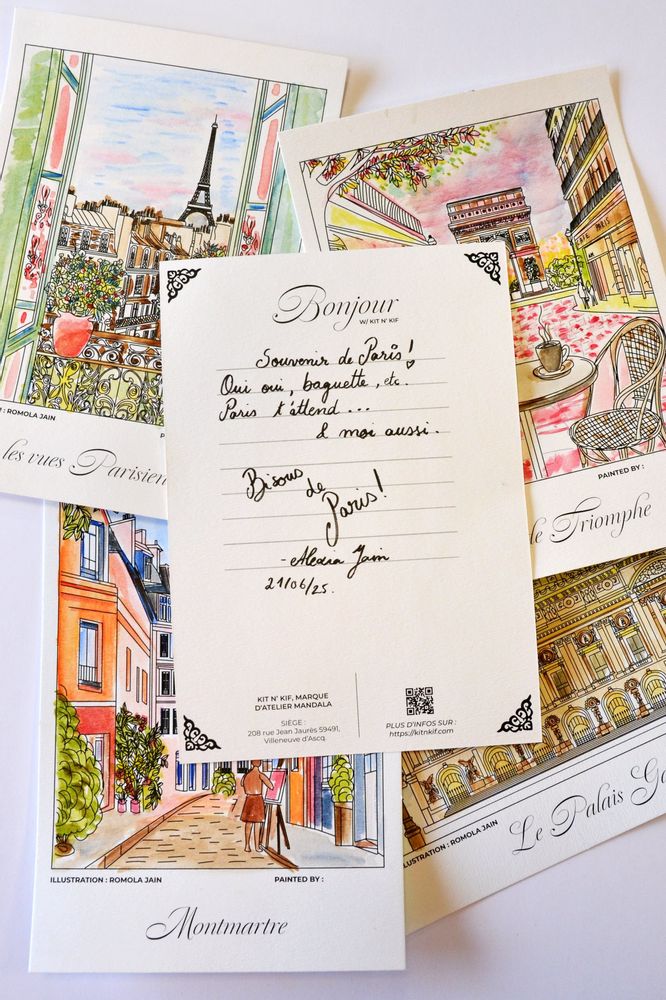 Bonjour
W/ KIT N' KIF
Souvenir de Paris!
Oui oui, baguette, etc.
Paris t'attend...
& moi aussi.
Bisous
de
Paris!
- Alexia Jain
21/06/25.
KIT N' KIF, MARQUE
D'ATELIER MANDALA
SIÈGE :
208 rue Jean Jaurès 59491,
Villeneuve d'Ascq.
PLUS D'INFOS SUR :
https://kitnkif.com
: ROMOLA JAIN
les vues Parisien
PARIS
PAINTED BY :
de Triomphe
ILLUSTRATION : ROMOLA JAIN
PAINTED BY :
Montmartre
ILLUSTRATION : ROMOLA JAIN
Le Palais Ga